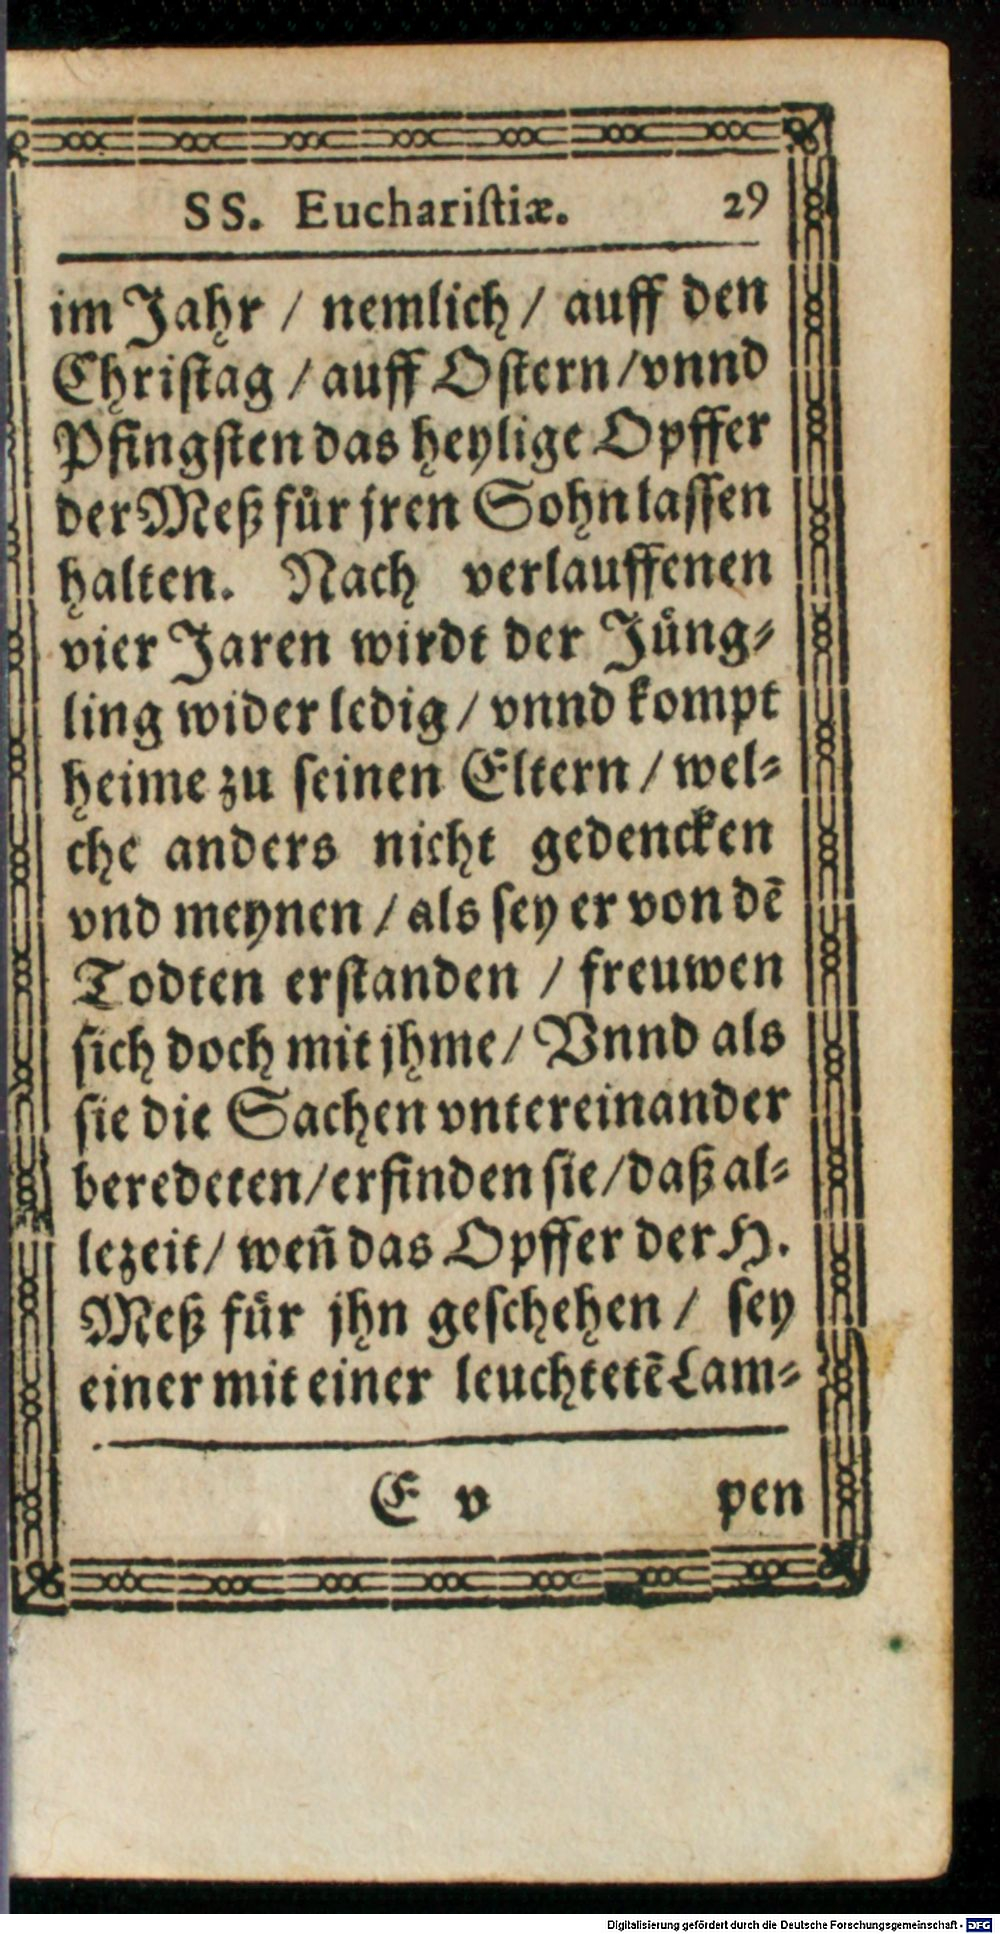 SS. Euchariſtiæ. 29
im Jahr / nemlich / auff den
Chriſtag / auff Oſtern / vnnd
Pfingſten das heylige Opffer
der Meß für jren Sohn laſſen
halten. Nach verlauffenen
vier Jaren wirdt der Jüng⸗
ling wider ledig / vnnd kompt
heime zu ſeinen Eltern / wel⸗
che anders nicht gedencken
vnd meynen / als ſey er von dē
Todten erſtanden / freuwen
ſich doch mit jhme / Vnnd als
ſie die Sachen vntereinander
beredeten / erfinden ſie / daß al⸗
lezeit / weñ das Opffer der H.
Meß für jhn geſchehen / ſey
einer mit einer leuchtetē Lam⸗
E v pen
Digitalisierung gefördert durch die Deutsche Forschungsgemeinschaft - DFG